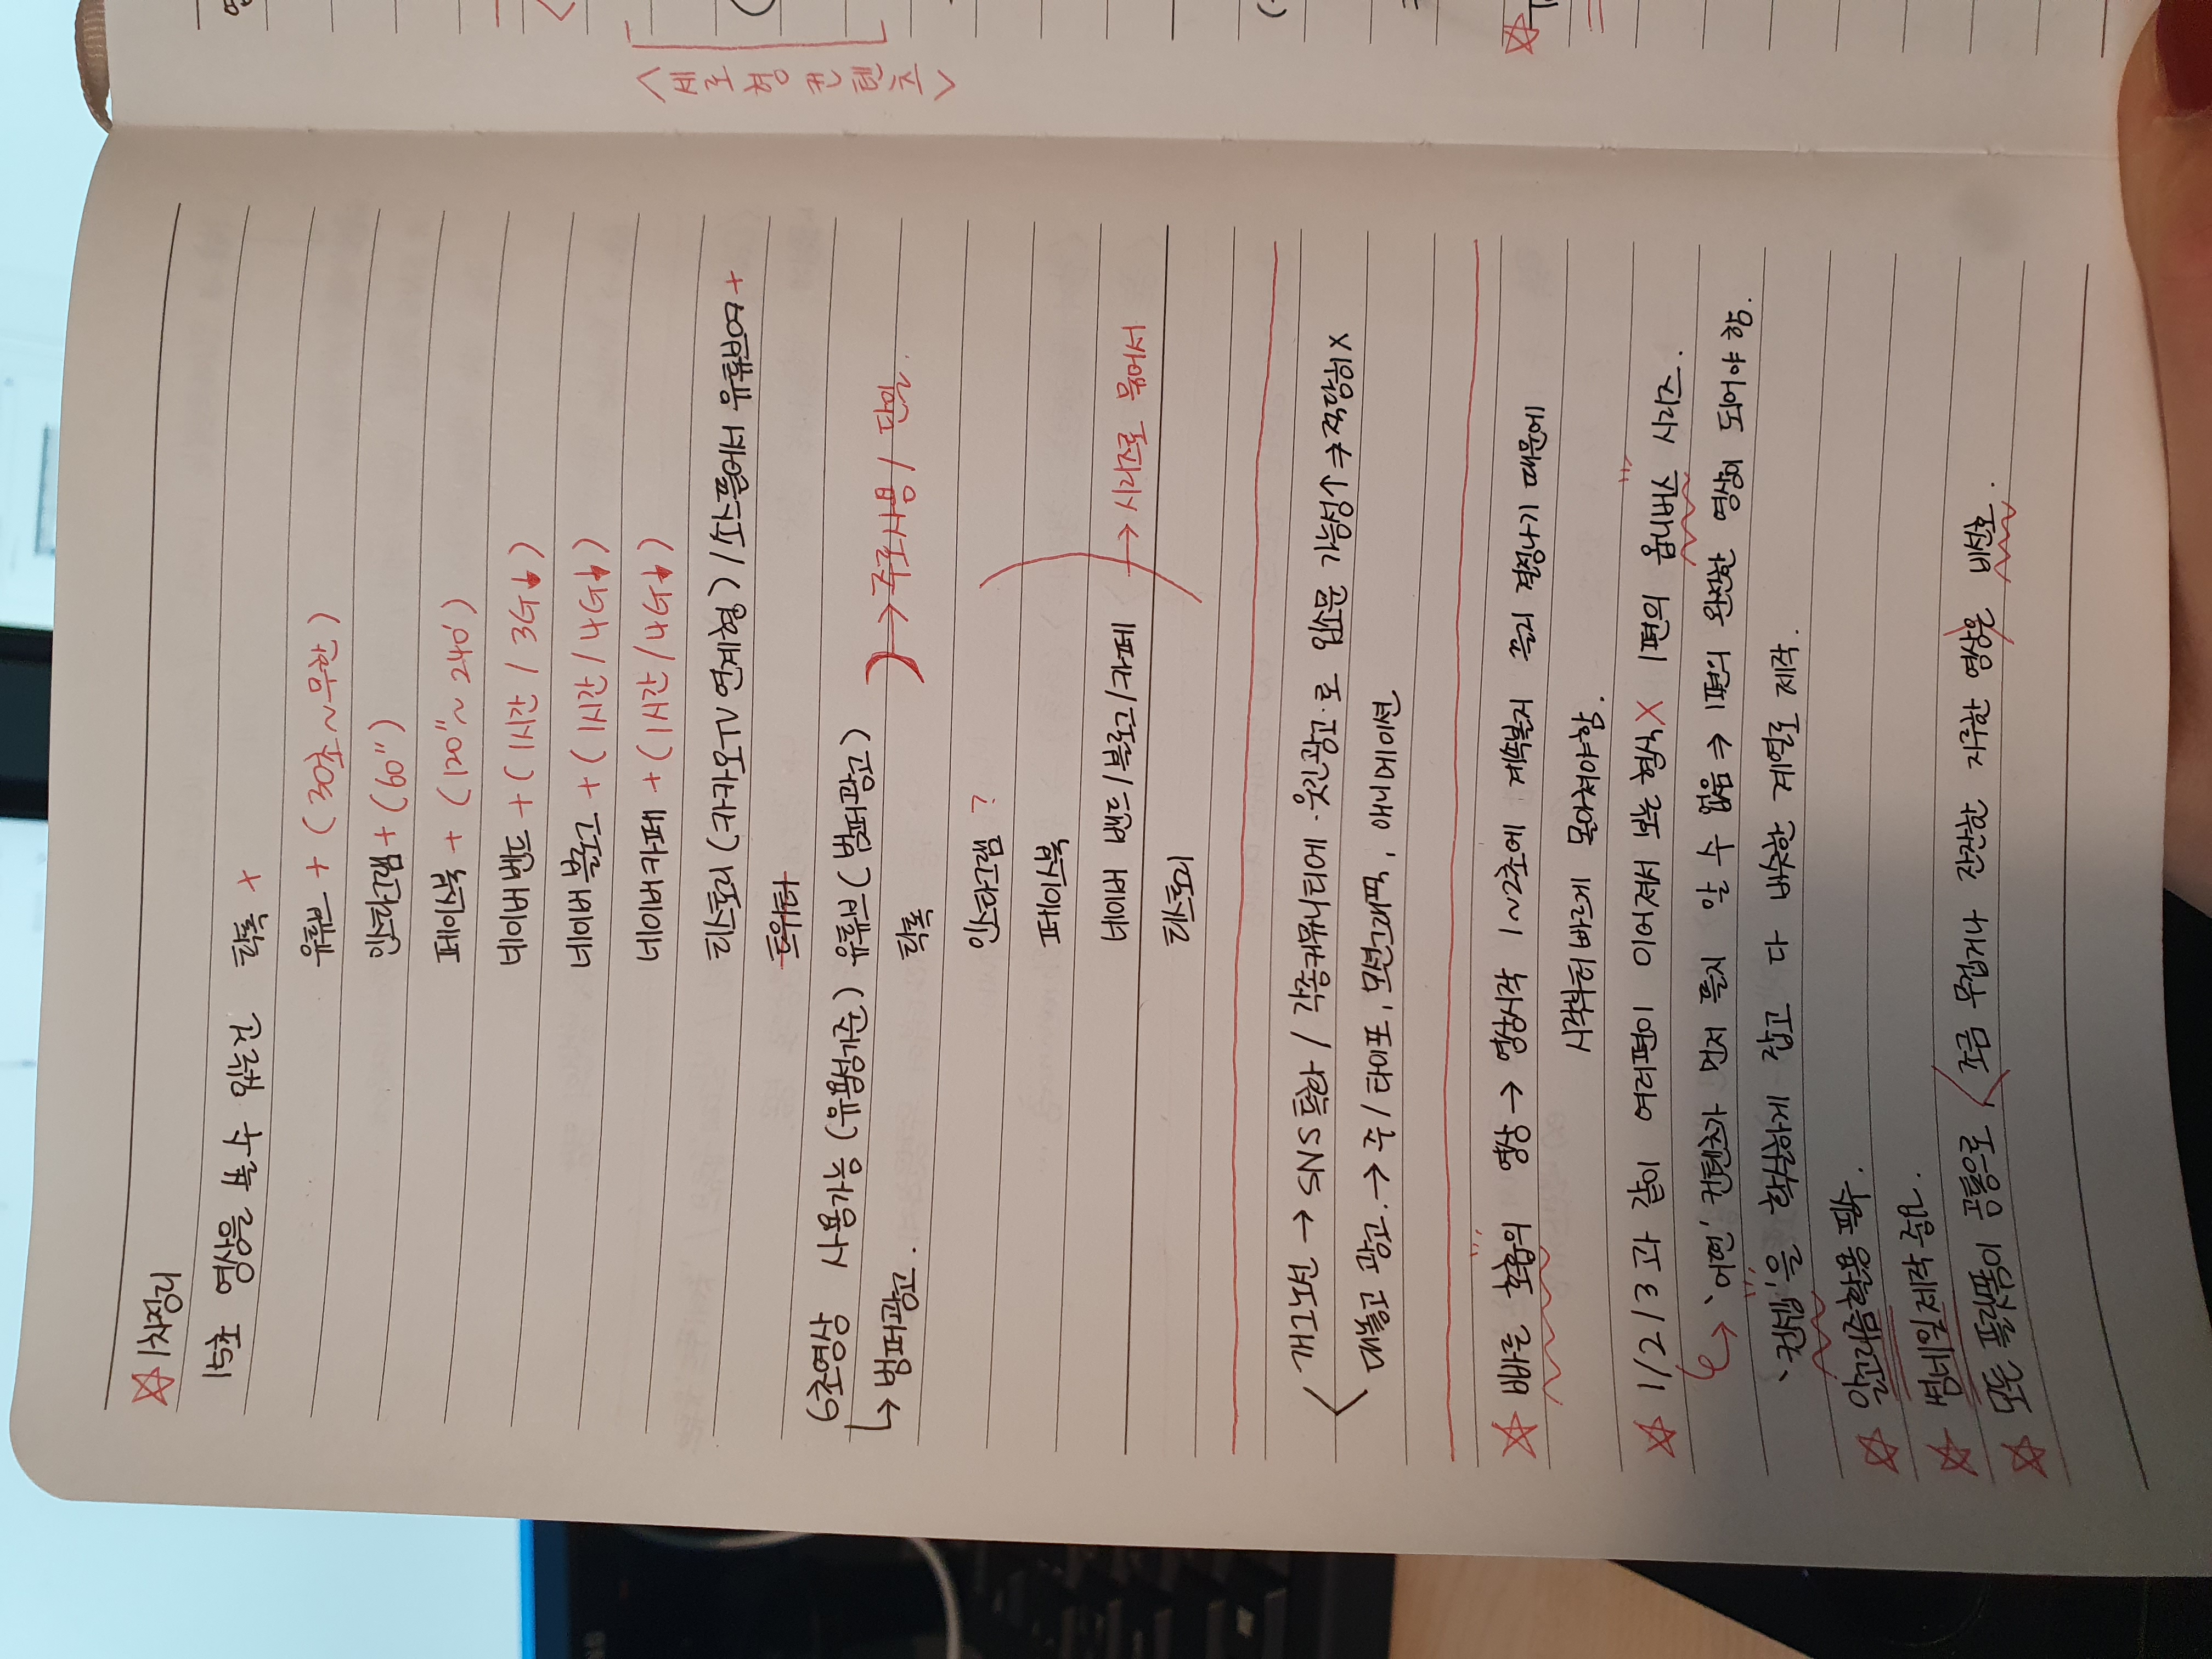 ☆ 1차정리
15초 영상을 쓸 수 있는건 틱톡 +
유튜브 + (30초~무한)
인스타그램 + (60")
페이스북 + (120"~ 240')
네이버 밴드 + (1시간 / 3G↓)
네이버 블로그 + (1시간 / 4G↓)
네이버 카페 + (1시간 / 4G↓)
티스토리 (카카오TV 연계형) / 소스플에서 유튜브 +
트위터
6초영상 사용가능 (유용성기준) 유튜브 (범퍼광고)
↳ 범퍼광고.
틱톡
→ 주로사용 / 단일.
인스타그램 ?
페이스북
네이버 밴드 / 블로그 / 카페 → 시리즈로 묶어서
티스토리
개그노선 → SNS 특화 / 각종커뮤니티에 '웃긴광고'로 입소문 가능성↑ ⇒ 적당히 X
대놓고 광고. → 주 / 타이포, 모션그래픽, 애니메이션
☆ 빠른 호흡의 영상 → 영상시작 1~2초에 계속볼지 끌지 결정나기 때문에
시작부터 빠르게 몰아쳐야함.
☆ 1/2/3과 같이 여러편이 이어져서 보는 형식 X 1편의 옴니버스 시리즈.
↳ '어떤' 컨텐츠가 먼저 뜰지 알 수 없음 ⇒ 1편의 완전한 영상이 되어야 함.
'컨셉'을 확실하게 잡고 다 비슷한 계열로 제작.
☆ 알고리즘활용 필수.
☆ 썸네일 제작 중요.
☆ 모든 플랫폼이 공통으로 < 조금 무겁거나 잔잔한 지루한 영상 > 은 비선호.
<세로형 컨텐츠>